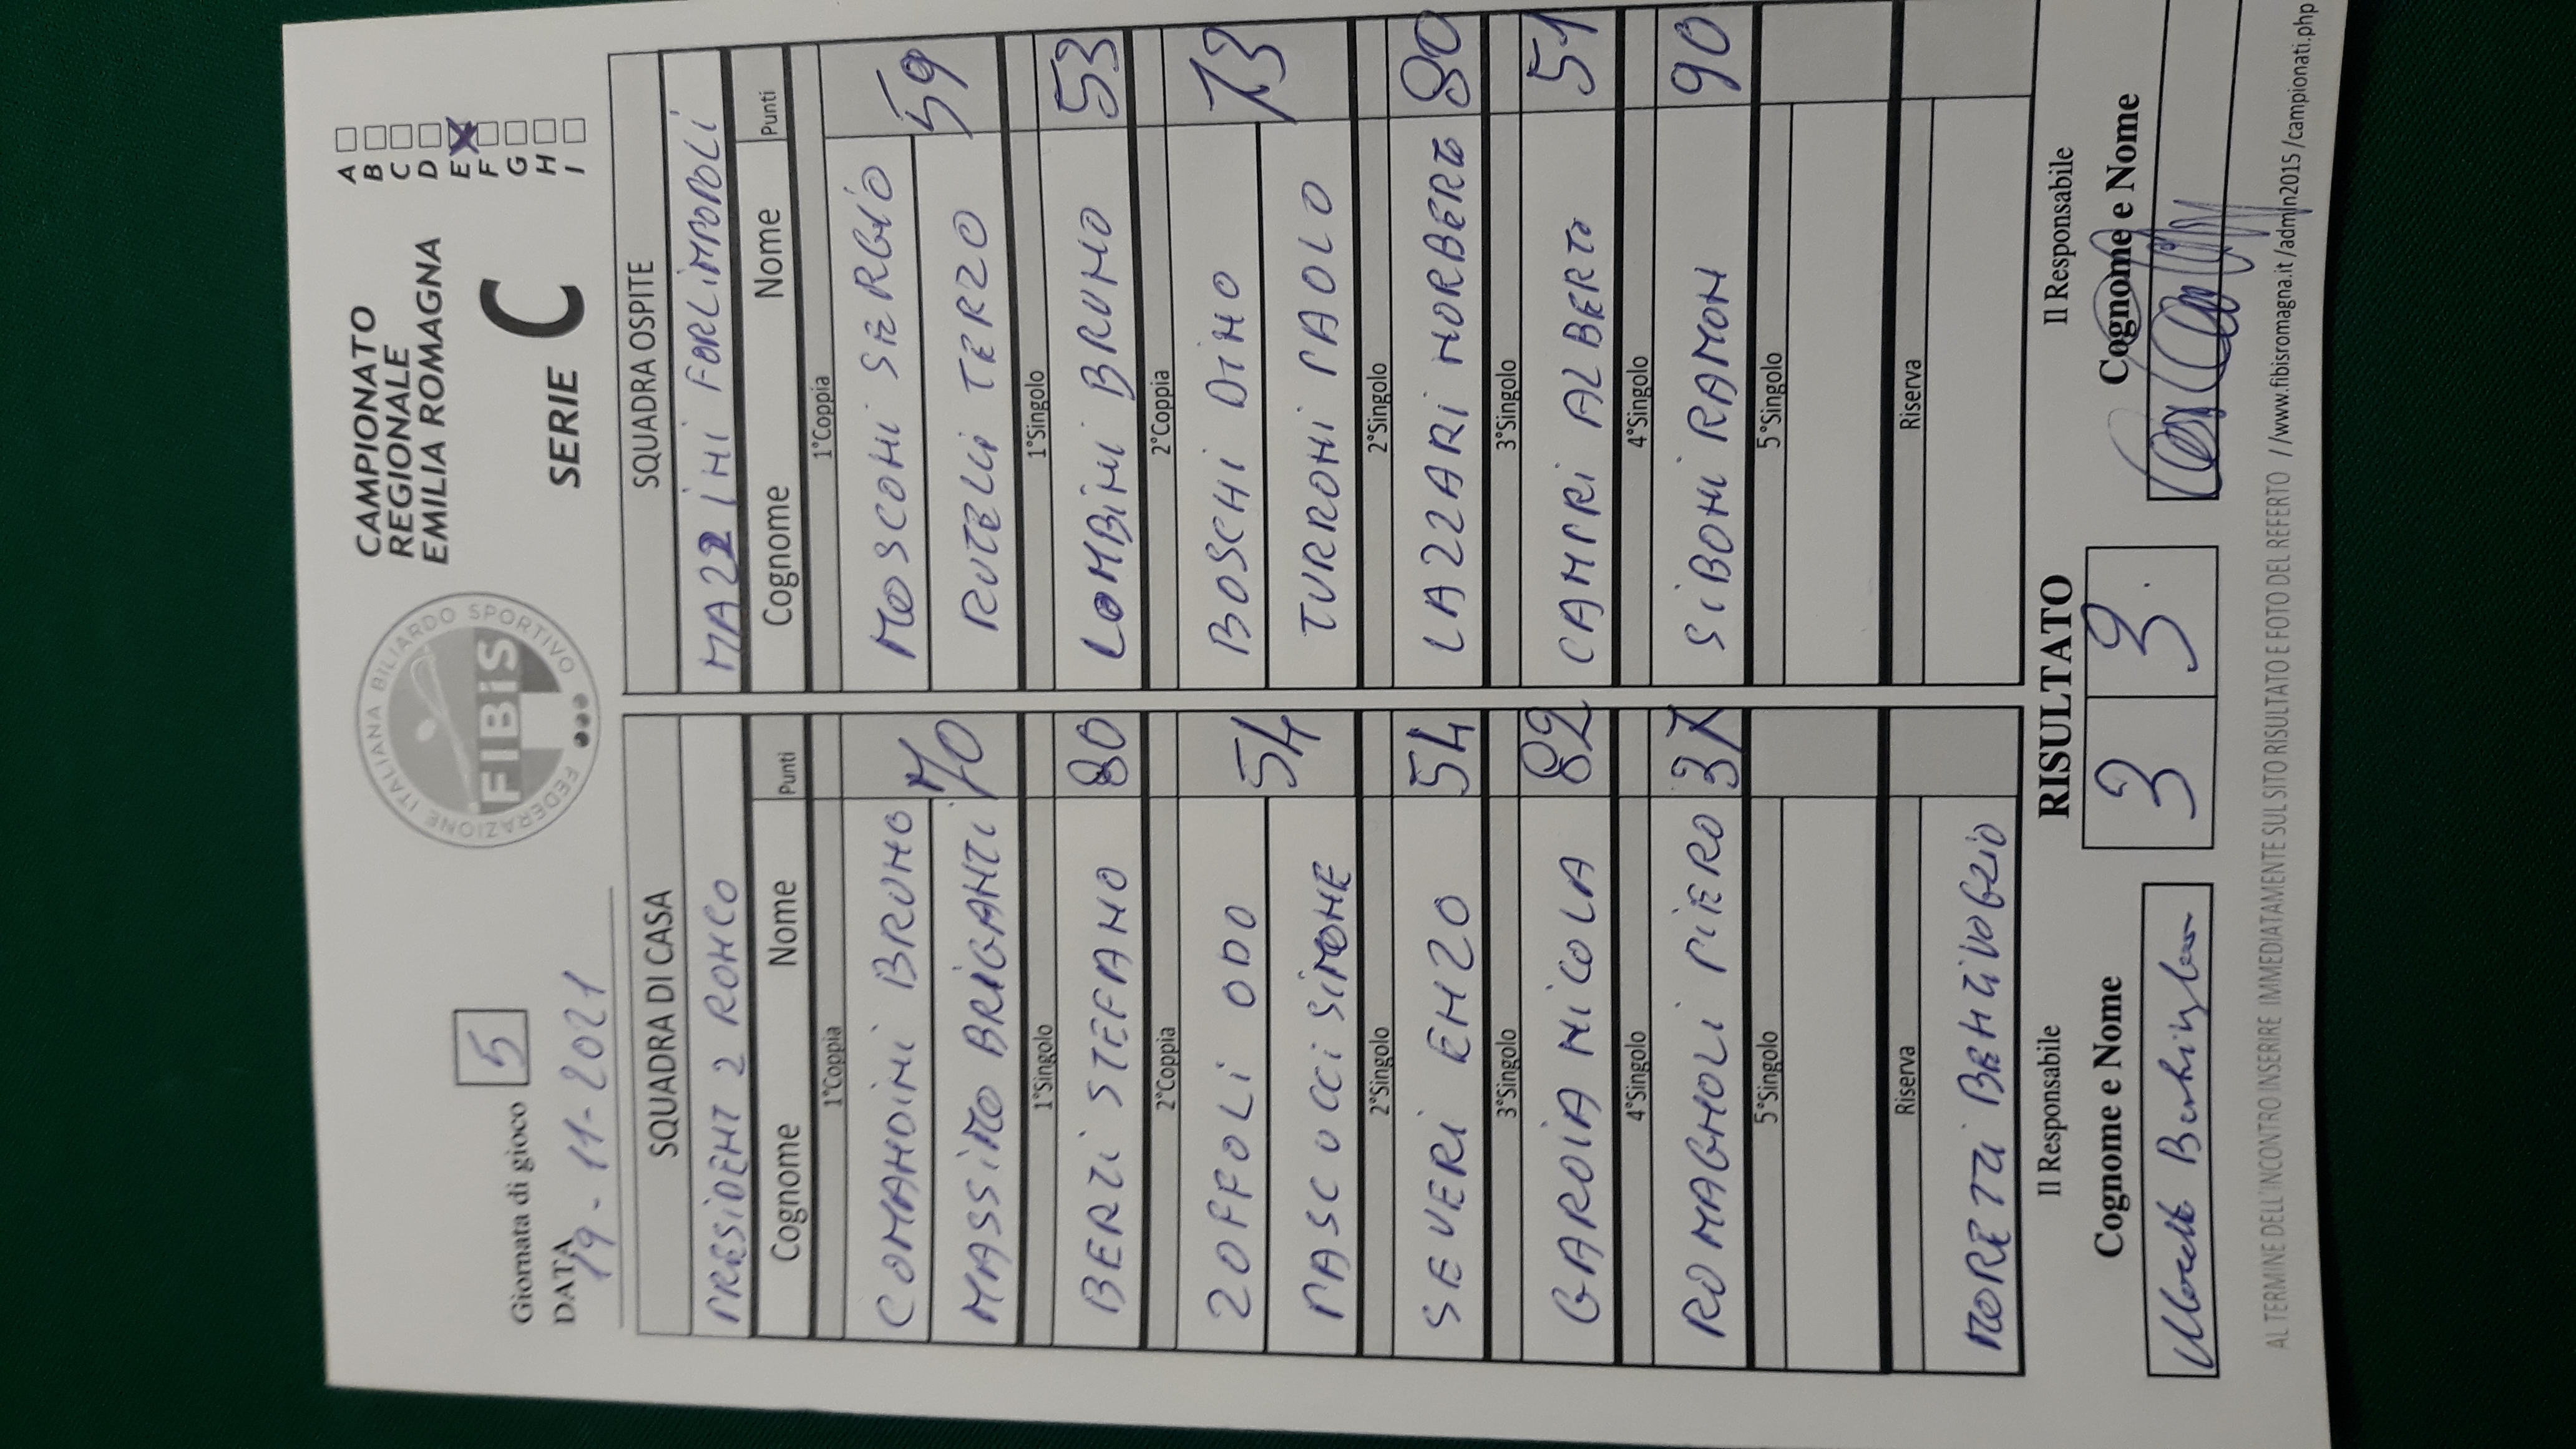 Giornata di gioco 5
DATA 19-11-2021
FEDERAZIONE ITALIANA BILIARDO SPORTIVO
FIBiS
CAMPIONATO
REGIONALE
EMILIA ROMAGNA
SERIE C
A
B
C
D
E X
F
G
H
I
SQUADRA DI CASA
PRESIDENT 2 RONCO
Cognome Nome Punti
1°Coppia
COMANDINI BRUNO
MASSIMO BRIGANTI 70
1°Singolo
BERTI STEFANO 80
2°Coppia
ZOFFOLI ODO
PASCUCCI SIMONE 54
2°Singolo
SEVERI ENZO 54
3°Singolo
GARDIA NICOLA 82
4°Singolo
ROMAGNOLI PIERO 37
5°Singolo
Riserva
MORETTI BENTIVOGLIO
SQUADRA OSPITE
MAZZINI FORLIMPOPOLI
Cognome Nome Punti
1°Coppia
MOSCONI SERGIO
RUTELLI TERZO 59
1°Singolo
LOMBINI BRUNO 53
2°Coppia
BOSCHI DINO
TURRONI PAOLO 73
2°Singolo
LAZZARI NORBERTO 80
3°Singolo
CAMPRI ALBERTO 51
4°Singolo
SIBONI RAMON 90
5°Singolo
Riserva
Il Responsabile
Cognome e Nome
RISULTATO
3 3.
Il Responsabile
Cognome e Nome
AL TERMINE DELL'INCONTRO INSERIRE IMMEDIATAMENTE SUL SITO RISULTATO E FOTO DEL REFERTO //www.fibisromagna.it/admin2015/campionati.php